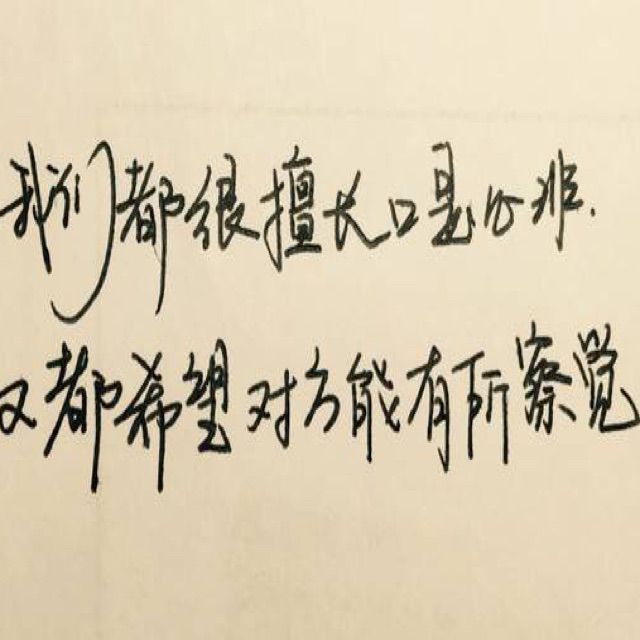 我们都很擅长口是心非.
又都希望对方能有所察觉